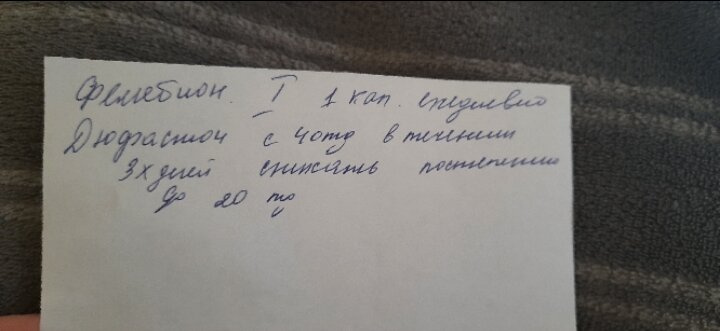 Фемибион. I 1 кап. ежедневно
Дюфастон с 40 mg в течении
3х дней снижать постепенно
до 20 mg